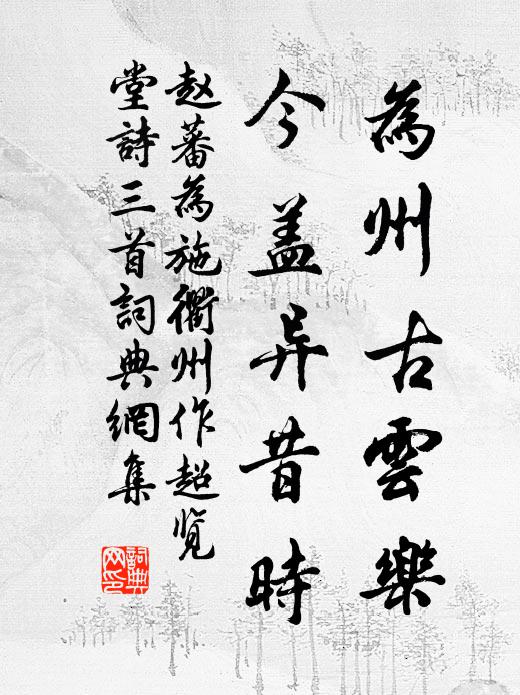 為州古雲樂
今盖异昔時
赵蕃為施衢州作超览
堂詩三首詞典網集
詞典
网印